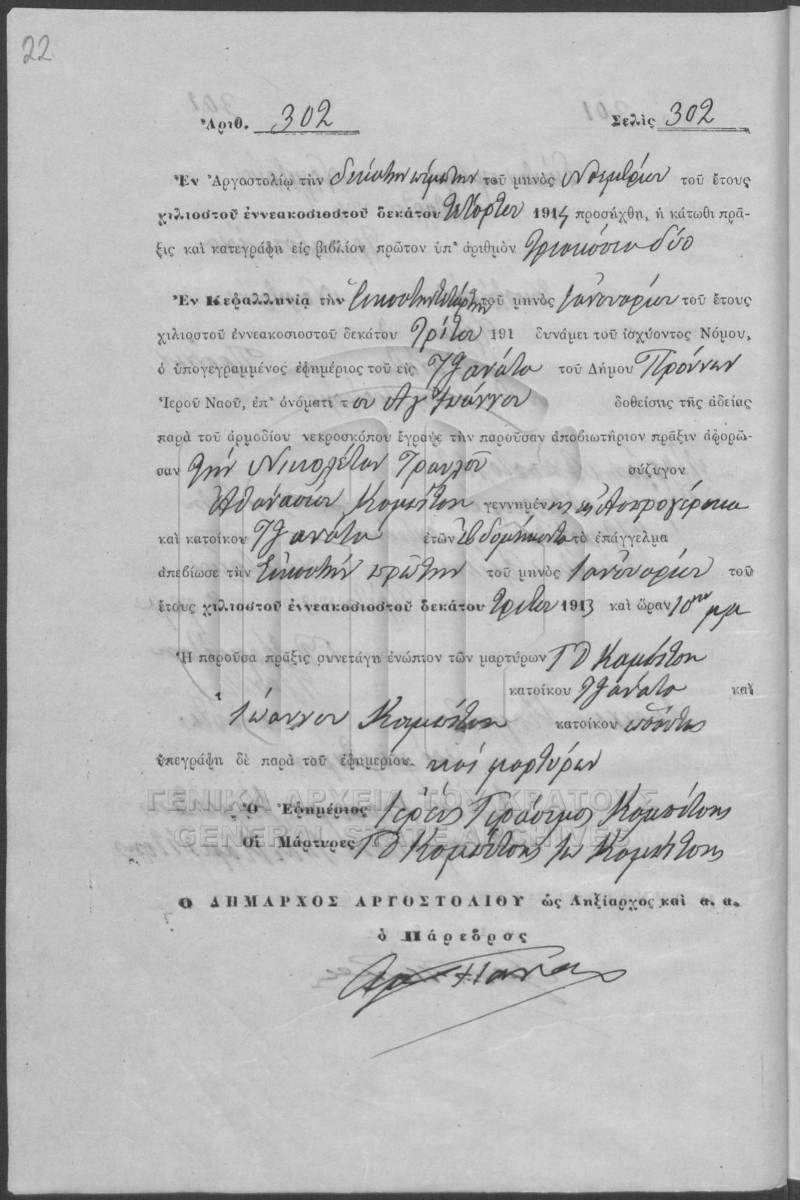 22
Ἀριθ. 302 Σελὶς 302
Ἐν Ἀργοστολίῳ τὴν δεκάτην πέμπτην τοῦ μηνὸς Νοεμβρίου τοῦ ἔτους
χιλιοστοῦ ἐννεακοσιοστοῦ δεκάτου τετάρτου 1914 προσήχθη, ἡ κάτωθι πρᾶ-
ξις καὶ κατεγράφη εἰς βιβλίον πρῶτον ὑπ' ἀριθμὸν τριακόσια δύο
Ἐν Κεφαλληνίᾳ τὴν εἰκοστὴν τετάρτην τοῦ μηνὸς Ἰανουαρίου τοῦ ἔτους
χιλιοστοῦ ἐννεακοσιοστοῦ δεκάτου τρίτου 191 δυνάμει τοῦ ἰσχύοντος Νόμου,
ὁ ὑπογεγραμμένος ἐφημέριος τοῦ εἰς Τζανάτα τοῦ Δήμου Πρόννων
Ἱεροῦ Ναοῦ, ἐπ' ὀνόματι τοῦ Ἁγ Ἰωάννου δοθείσης τῆς ἀδείας
παρὰ τοῦ ἁρμοδίου νεκροσκόπου ἔγραψε τὴν παροῦσαν ἀποβιωτήριον πρᾶξιν ἀφορῶ-
σαν τὴν Νικολέταν Τραυλοῦ σύζυγον
Ἀθανασίου Κομπότου γεννημένης εἰς Ἀσπρογέρακα
καὶ κατοίκου Τζανάτα ἐτῶν ἑβδομήκοντα τὸ ἐπάγγελμα
ἀπεβίωσε τὴν Εἰκοστὴν πρώτην τοῦ μηνὸς Ἰανουαρίου τοῦ
ἔτους χιλιοστοῦ ἐννεακοσιοστοῦ δεκάτου τρίτου 1913 καὶ ὥραν 10ην μμ
Ἡ παροῦσα πρᾶξις συνετάγη ἐνώπιον τῶν μαρτύρων Γ Δ Κομπότου
κατοίκου Τζανάτα καὶ
Ἰωάννου Κομπότου κατοίκου
ὑπεγράφη δὲ παρὰ τοῦ ἐφημερίου καὶ μαρτύρων
ΓΕΝΙΚΑ ΑΡΧΕΙΑ ΤΟΥ ΚΡΑΤΟΥΣ
Ὁ Ἐφημέριος Ἱερεὺς Γεράσιμος Κομπότης
GENERAL STATE ARCHIVES
Οἱ Μάρτυρες Γ Δ Κομπότης Ἰω Κομπότης
Ο ΔΗΜΑΡΧΟΣ ΑΡΓΟΣΤΟΛΙΟΥ ὡς Ληξίαρχος καὶ α. α.
ὁ Πάρεδρος